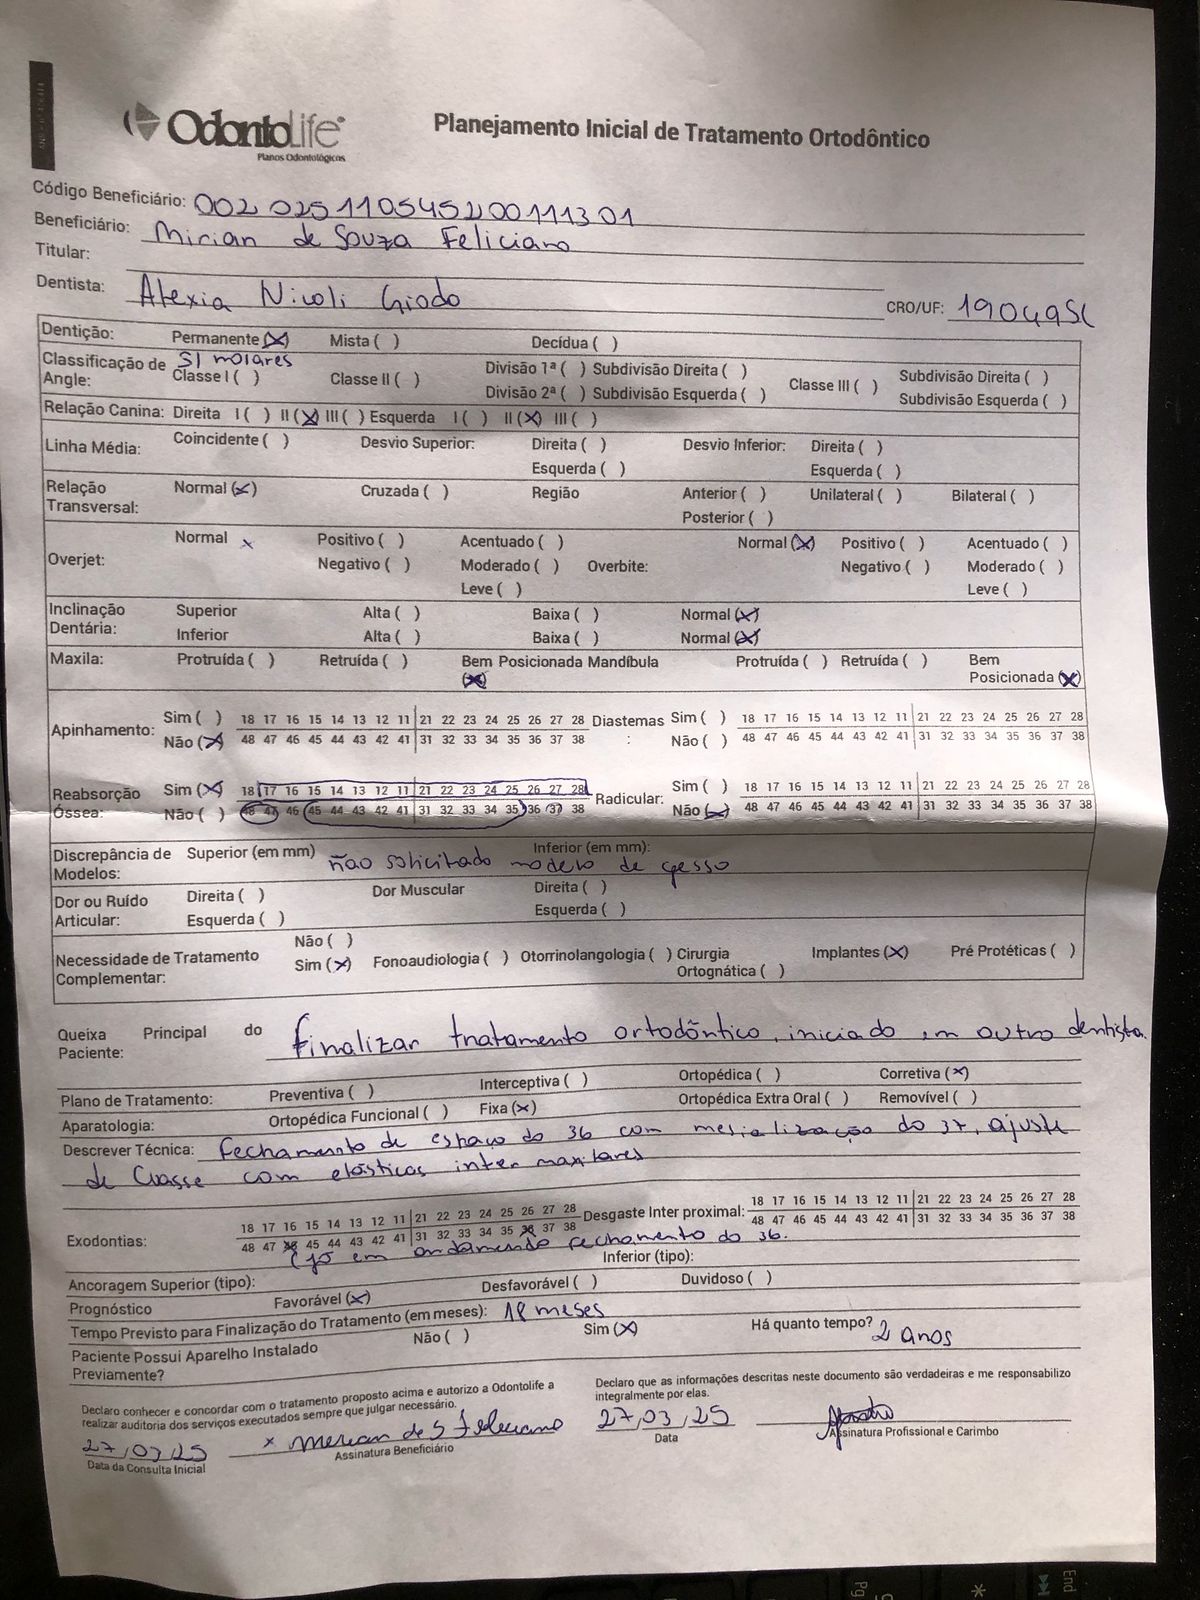 OdontoLife
Planos Odontológicos
Planejamento Inicial de Tratamento Ortodôntico
Código Beneficiário: 00202511054520011301
Beneficiário: Mirian de Souza Feliciano
Titular:
Dentista: Alexia Nicoli Giodo CRO/UF: 19049SC
Dentição: Permanente (X) Mista ( ) Decídua ( )
S/ molares
Classificação de Angle: Classe I ( ) Classe II ( ) Divisão 1ª ( ) Subdivisão Direita ( ) Classe III ( ) Subdivisão Direita ( )
Divisão 2ª ( ) Subdivisão Esquerda ( ) Subdivisão Esquerda ( )
Relação Canina: Direita I ( ) II (X) III ( ) Esquerda I ( ) II (X) III ( )
Linha Média: Coincidente ( ) Desvio Superior: Direita ( ) Desvio Inferior: Direita ( )
Esquerda ( ) Esquerda ( )
Relação Transversal: Normal (X) Cruzada ( ) Região Anterior ( ) Unilateral ( ) Bilateral ( )
Posterior ( )
Overjet: Normal x Positivo ( ) Acentuado ( ) Overbite: Normal (X) Positivo ( ) Acentuado ( )
Negativo ( ) Moderado ( ) Negativo ( ) Moderado ( )
Leve ( ) Leve ( )
Inclinação Dentária: Superior Alta ( ) Baixa ( ) Normal (X)
Inferior Alta ( ) Baixa ( ) Normal (X)
Maxila: Protruída ( ) Retruída ( ) Bem Posicionada (X) Mandíbula Protruída ( ) Retruída ( ) Bem Posicionada (X)
Apinhamento: Sim ( ) 18 17 16 15 14 13 12 11 21 22 23 24 25 26 27 28 Diastemas : Sim ( ) 18 17 16 15 14 13 12 11 21 22 23 24 25 26 27 28
Não (X) 48 47 46 45 44 43 42 41 31 32 33 34 35 36 37 38 Não ( ) 48 47 46 45 44 43 42 41 31 32 33 34 35 36 37 38
Reabsorção Óssea: Sim (X) 18 17 16 15 14 13 12 11 21 22 23 24 25 26 27 28 Radicular: Sim ( ) 18 17 16 15 14 13 12 11 21 22 23 24 25 26 27 28
Não ( ) 48 47 46 45 44 43 42 41 31 32 33 34 35 36 37 38 Não (X) 48 47 46 45 44 43 42 41 31 32 33 34 35 36 37 38
Discrepância de Modelos: Superior (em mm) Inferior (em mm):
não solicitado modelo de gesso
Dor ou Ruído Articular: Direita ( ) Dor Muscular Direita ( )
Esquerda ( ) Esquerda ( )
Necessidade de Tratamento Complementar: Não ( )
Sim (X) Fonoaudiologia ( ) Otorrinolangologia ( ) Cirurgia Ortognática ( ) Implantes (X) Pré Protéticas ( )
Queixa Principal do Paciente: finalizar tratamento ortodôntico, iniciado em outro dentista.
Plano de Tratamento: Preventiva ( ) Interceptiva ( ) Ortopédica ( ) Corretiva (X)
Aparatologia: Ortopédica Funcional ( ) Fixa (X) Ortopédica Extra Oral ( ) Removível ( )
Descrever Técnica: Fechamento de espaço do 36 com mesialização do 37, ajuste
de Classe com elásticos intermaxilares
Exodontias: 18 17 16 15 14 13 12 11 21 22 23 24 25 26 27 28 Desgaste Inter proximal: 18 17 16 15 14 13 12 11 21 22 23 24 25 26 27 28
48 47 46 45 44 43 42 41 31 32 33 34 35 36 37 38 48 47 46 45 44 43 42 41 31 32 33 34 35 36 37 38
(já em andamento fechamento do 36.
Ancoragem Superior (tipo): Inferior (tipo):
Prognóstico Favorável (X) Desfavorável ( ) Duvidoso ( )
Tempo Previsto para Finalização do Tratamento (em meses): 18 meses
Paciente Possui Aparelho Instalado Previamente? Não ( ) Sim (X) Há quanto tempo? 2 anos
Declaro conhecer e concordar com o tratamento proposto acima e autorizo a Odontolife a realizar auditoria dos serviços executados sempre que julgar necessário.
Declaro que as informações descritas neste documento são verdadeiras e me responsabilizo integralmente por elas.
27,03,25 x Mirian de S Feliciano 27,03,25
Data da Consulta Inicial Assinatura Beneficiário Data Assinatura Profissional e Carimbo
End
Pg
*